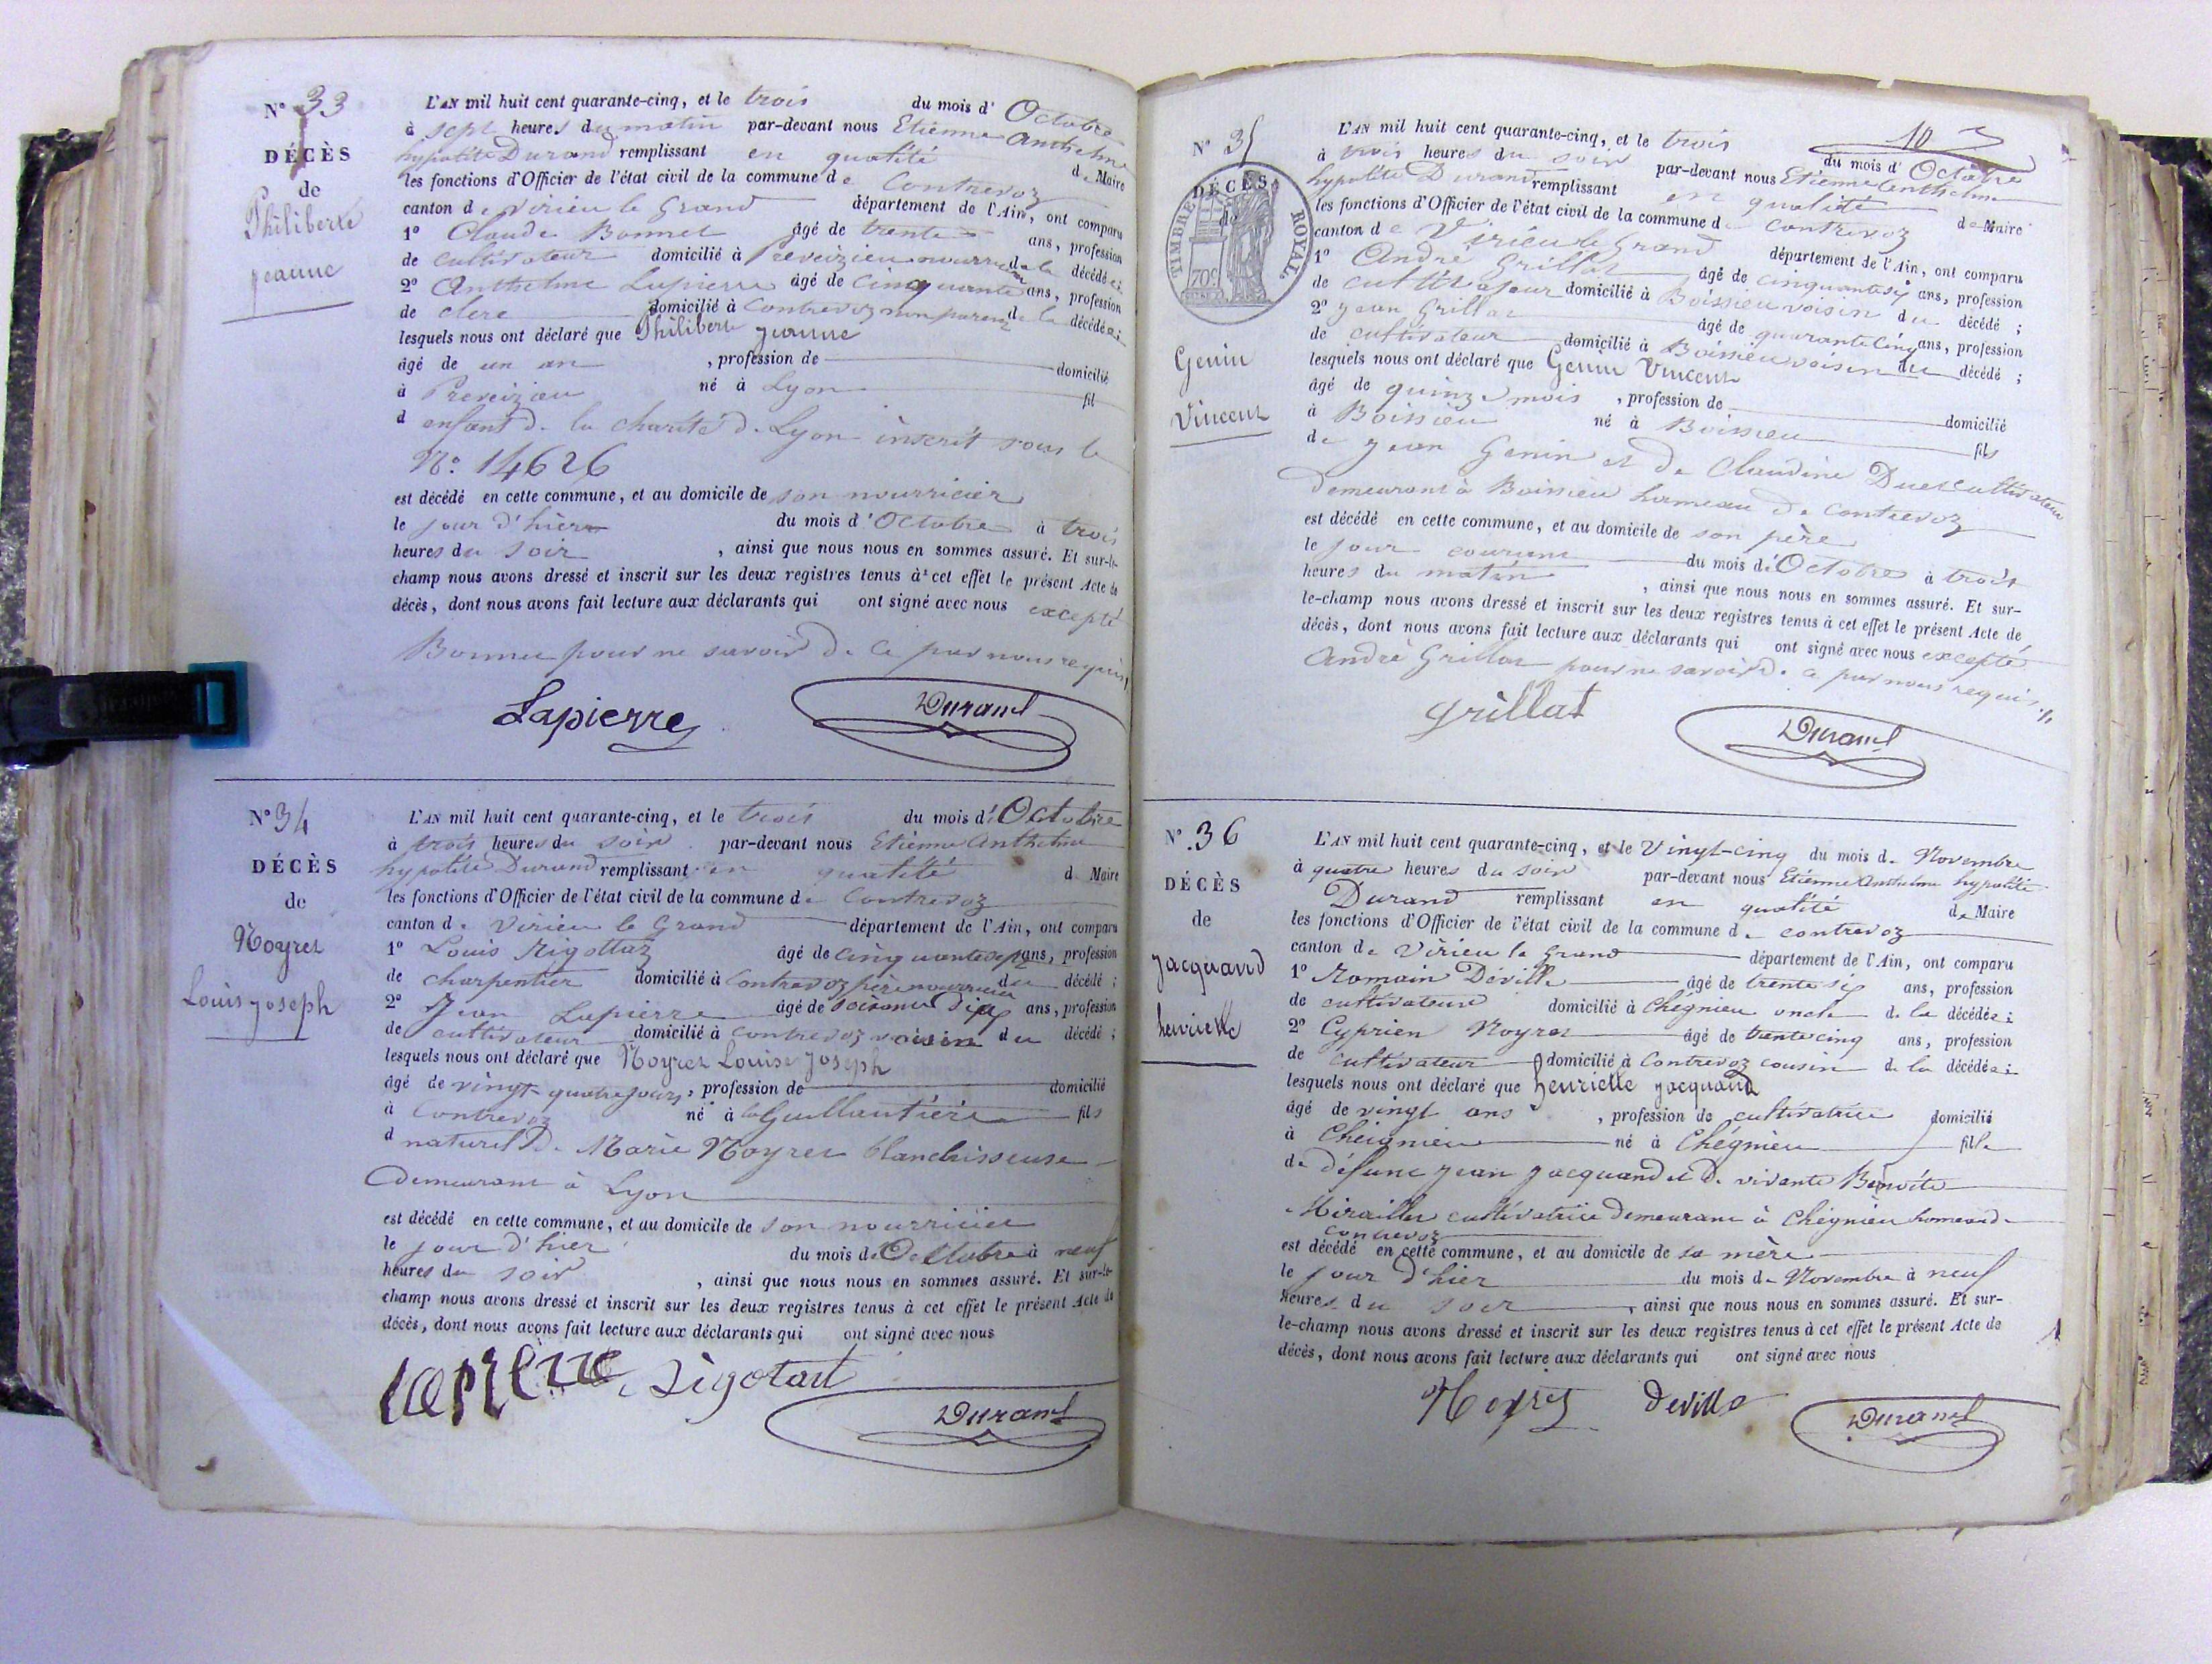 N° 33
DÉCÈS
de
Philiberte
jeanne
L'AN mil huit cent quarante-cinq, et le trois du mois d' Octobre
à sept heures du matin par-devant nous Etienne Anthelme
hypolite Durand remplissant en qualité de Maire
les fonctions d'Officier de l'état civil de la commune de Contrevoz
canton de Virieu le Grand département de l'Ain, ont comparu
1° Claude Bonnet âgé de trente ans, profession
de cultivateur domicilié à Preveizieu nourricier de la décédée;
2° Anthelme Lapierre âgé de cinquante ans, profession
de clerc domicilié à Contrevoz non parent de la décédée;
lesquels nous ont déclaré que Philiberte jeanne
âgé de un an , profession de domicilié
à Preveizieu né à Lyon fil
d enfant de la charité de Lyon inscrit sous le
N°. 14626
est décédé en cette commune, et au domicile de son nourricier
le jour d'hier du mois d'Octobre à trois
heures du soir , ainsi que nous nous en sommes assuré. Et sur-le-
champ nous avons dressé et inscrit sur les deux registres tenus à cet effet le présent Acte de
décès, dont nous avons fait lecture aux déclarants qui ont signé avec nous excepté
Bonnet pour ne savoir de ce par nous requis
Lapierre Durand
N° 34
DÉCÈS
de
Noyret
Louis joseph
L'AN mil huit cent quarante-cinq, et le trois du mois d'Octobre
à trois heures du soir par-devant nous Etienne Anthelme
hypolite Durand remplissant en qualité d Maire
les fonctions d'Officier de l'état civil de la commune de Contrevoz
canton de Virieu le Grand département de l'Ain, ont comparu
1° Louis Rigottaz âgé de cinquante sept ans, profession
de charpentier domicilié à Contrevoz père nourricier du décédé;
2° Jean Lapierre âgé de soixante dix ans, profession
de cultivateur domicilié à Contrevoz voisin du décédé;
lesquels nous ont déclaré que Noyret Louis Joseph
âgé de vingt-quatre jours, profession de domicilié
à Contrevoz né à la Guillautière fils
d naturel de Marie Noyret blanchisseuse
demeurant à Lyon
est décédé en cette commune, et au domicile de son nourricier
le jour d'hier du mois de Octobre à neuf
heures du soir , ainsi que nous nous en sommes assuré. Et sur-le-
champ nous avons dressé et inscrit sur les deux registres tenus à cet effet le présent Acte de
décès, dont nous avons fait lecture aux déclarants qui ont signé avec nous
lapierre Rigotard
Durand
10
N° 35
DÉCÈS
de
TIMBRE ROYAL
70 c
Genin
Vincent
L'AN mil huit cent quarante-cinq, et le trois du mois d' Octobre
à trois heures du soir par-devant nous Etienne Anthelme
hypolite Durand remplissant en qualité de Maire
les fonctions d'Officier de l'état civil de la commune de Contrevoz
canton de Virieu le Grand département de l'Ain, ont comparu
1° André Grillat âgé de cinquante six ans, profession
de cultivateur domicilié à Boissieu voisin du décédé;
2° Jean Grillat âgé de quarante cinq ans, profession
de cultivateur domicilié à Boissieu voisin du décédé;
lesquels nous ont déclaré que Genin Vincent
âgé de quinze mois , profession de domicilié
à Boissieu né à Boissieu fils
de Jean Genin et de Claudine Duet cultivateurs
demeurant à Boissieu hameau de Contrevoz
est décédé en cette commune, et au domicile de son père
le jour courant du mois d'Octobre à trois
heures du matin , ainsi que nous nous en sommes assuré. Et sur-
le-champ nous avons dressé et inscrit sur les deux registres tenus à cet effet le présent Acte de
décès, dont nous avons fait lecture aux déclarants qui ont signé avec nous excepté
André Grillat pour ne savoir de ce par nous requis
grillat Durand
N° 36
DÉCÈS
de
jacquand
henriette
L'AN mil huit cent quarante-cinq, et le vingt-cinq du mois de Novembre
à quatre heures du soir par-devant nous Etienne Anthelme hypolite
Durand remplissant en qualité de Maire
les fonctions d'Officier de l'état civil de la commune de contrevoz
canton de Virieu le Grand département de l'Ain, ont comparu
1° Romain Déville âgé de trente six ans, profession
de cultivateur domicilié à Chégnieu oncle de la décédée;
2° Cyprien Noyret âgé de trente cinq ans, profession
de cultivateur domicilié à Contrevoz cousin de la décédée;
lesquels nous ont déclaré que henriette jacquand
âgé de vingt ans , profession de cultivatrice domicilié
à Cheignieu né à Chégnieu fille
de défunt jean jacquand et de vivante Benoîte
Mirailler cultivatrice demeurant à Chégnieu hameau de
contrevoz
est décédé en cette commune, et au domicile de sa mère
le jour d'hier du mois de Novembre à neuf
heures du soir , ainsi que nous nous en sommes assuré. Et sur-
le-champ nous avons dressé et inscrit sur les deux registres tenus à cet effet le présent Acte de
décès, dont nous avons fait lecture aux déclarants qui ont signé avec nous
Noyret Deville Durand